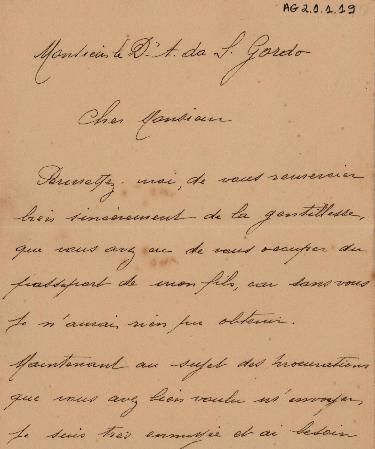 AG 2.0.1.19
Monsieur le Dr A. da S. Gordo
Cher Monsieur
Permettez-moi, de vous remercier
bien sincèrement de la gentillesse,
que vous avez eu de vous occuper du
passeport de mon fils, car sans vous
je n'aurais rien pu obtenir.
Maintenant au sujet des procurations
que vous avez bien voulu m'envoyer,
je suis très ennuyée et ai besoin